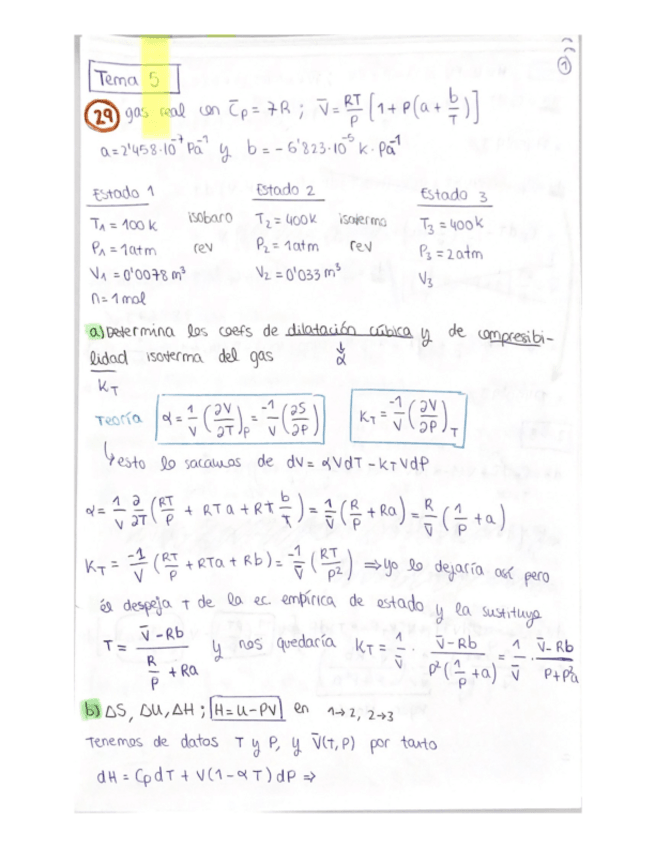 ①
Tema 5
29 gas real con C̄p = 7R ; V̄ = RT/P [1 + P(a + b/T)]
a = 2'458·10⁻⁷ Pa⁻¹ y b = -6'823·10⁻⁵ K·Pa⁻¹
Estado 1 Estado 2 Estado 3
T₁ = 100 K isobaro T₂ = 400K isotermo T₃ = 400K
P₁ = 1atm rev P₂ = 1atm rev P₃ = 2atm
V₁ = 0'0078 m³ V₂ = 0'033 m³ V₃
n = 1 mol
a) Determina los coefs de dilatación cúbica y de compresibi-
lidad isoterma del gas ↓ α
K_T
Teoría α = 1/V (∂V/∂T)_P = -1/V (∂S/∂P) K_T = -1/V (∂V/∂P)_T
↳ esto lo sacamos de dV = αVdT - K_T VdP
α = 1/V ∂/∂T (RT/P + RTa + RT b/T) = 1/V̄ (R/P + Ra) = R/V̄ (1/P + a)
K_T = -1/V (RT/P + RTa + Rb) = -1/V̄ (RT/P²) ⇒ yo lo dejaría así pero
él despeja T de la ec. empírica de estado y la sustituye
T = (V̄ - Rb)/(R/P + Ra) y nos quedaría K_T = 1/V̄ · (V̄ - Rb)/(P²(1/P + a)) = 1/V̄ · (V̄ - Rb)/(P + P²a)
b) ΔS, ΔU, ΔH ; H = U - PV en 1→2, 2→3
Tenemos de datos T y P, y V̄(T,P) por tanto
dH = CpdT + V(1 - αT)dP ⇒